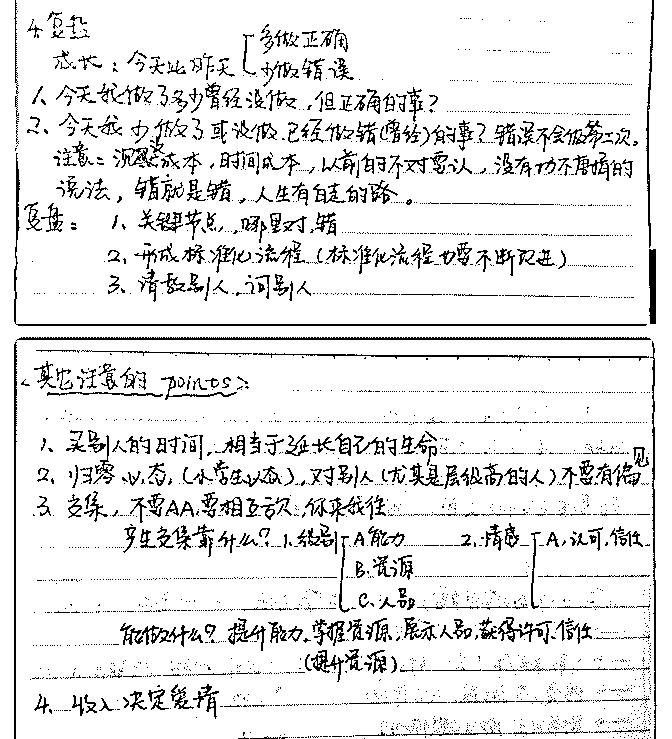 4. 复盘
多做正确
成长：今天比昨天 少做错误
1、今天我做了多少曾经没做，但正确的事？
2、今天我少做了或没做，已经做错(曾经)的事？错误不会做第二次。
注意：沉没成本，时间成本，以前的不对要认，没有功不唐捐的
说法，错就是错，人生有白走的路。
复盘： 1、关键节点，哪里对，错
2、形成标准化流程（标准化流程也要不断改进）
3、请教别人，问别人
<其它注意的 points>：
1、买别人的时间，相当于延长自己的生命
2、归零心态，（小学生心态），对别人（尤其是层级高的人）不要有偏见
3、交集，不要AA，要相互亏欠，你来我往
产生交集靠什么？ 1.级别 A能力 2.情感 A.认可.信任
B.资源
C.人品
能做什么？提升能力，掌握资源，展示人品，获得许可.信任
（提升资源）
4、收入决定爱情